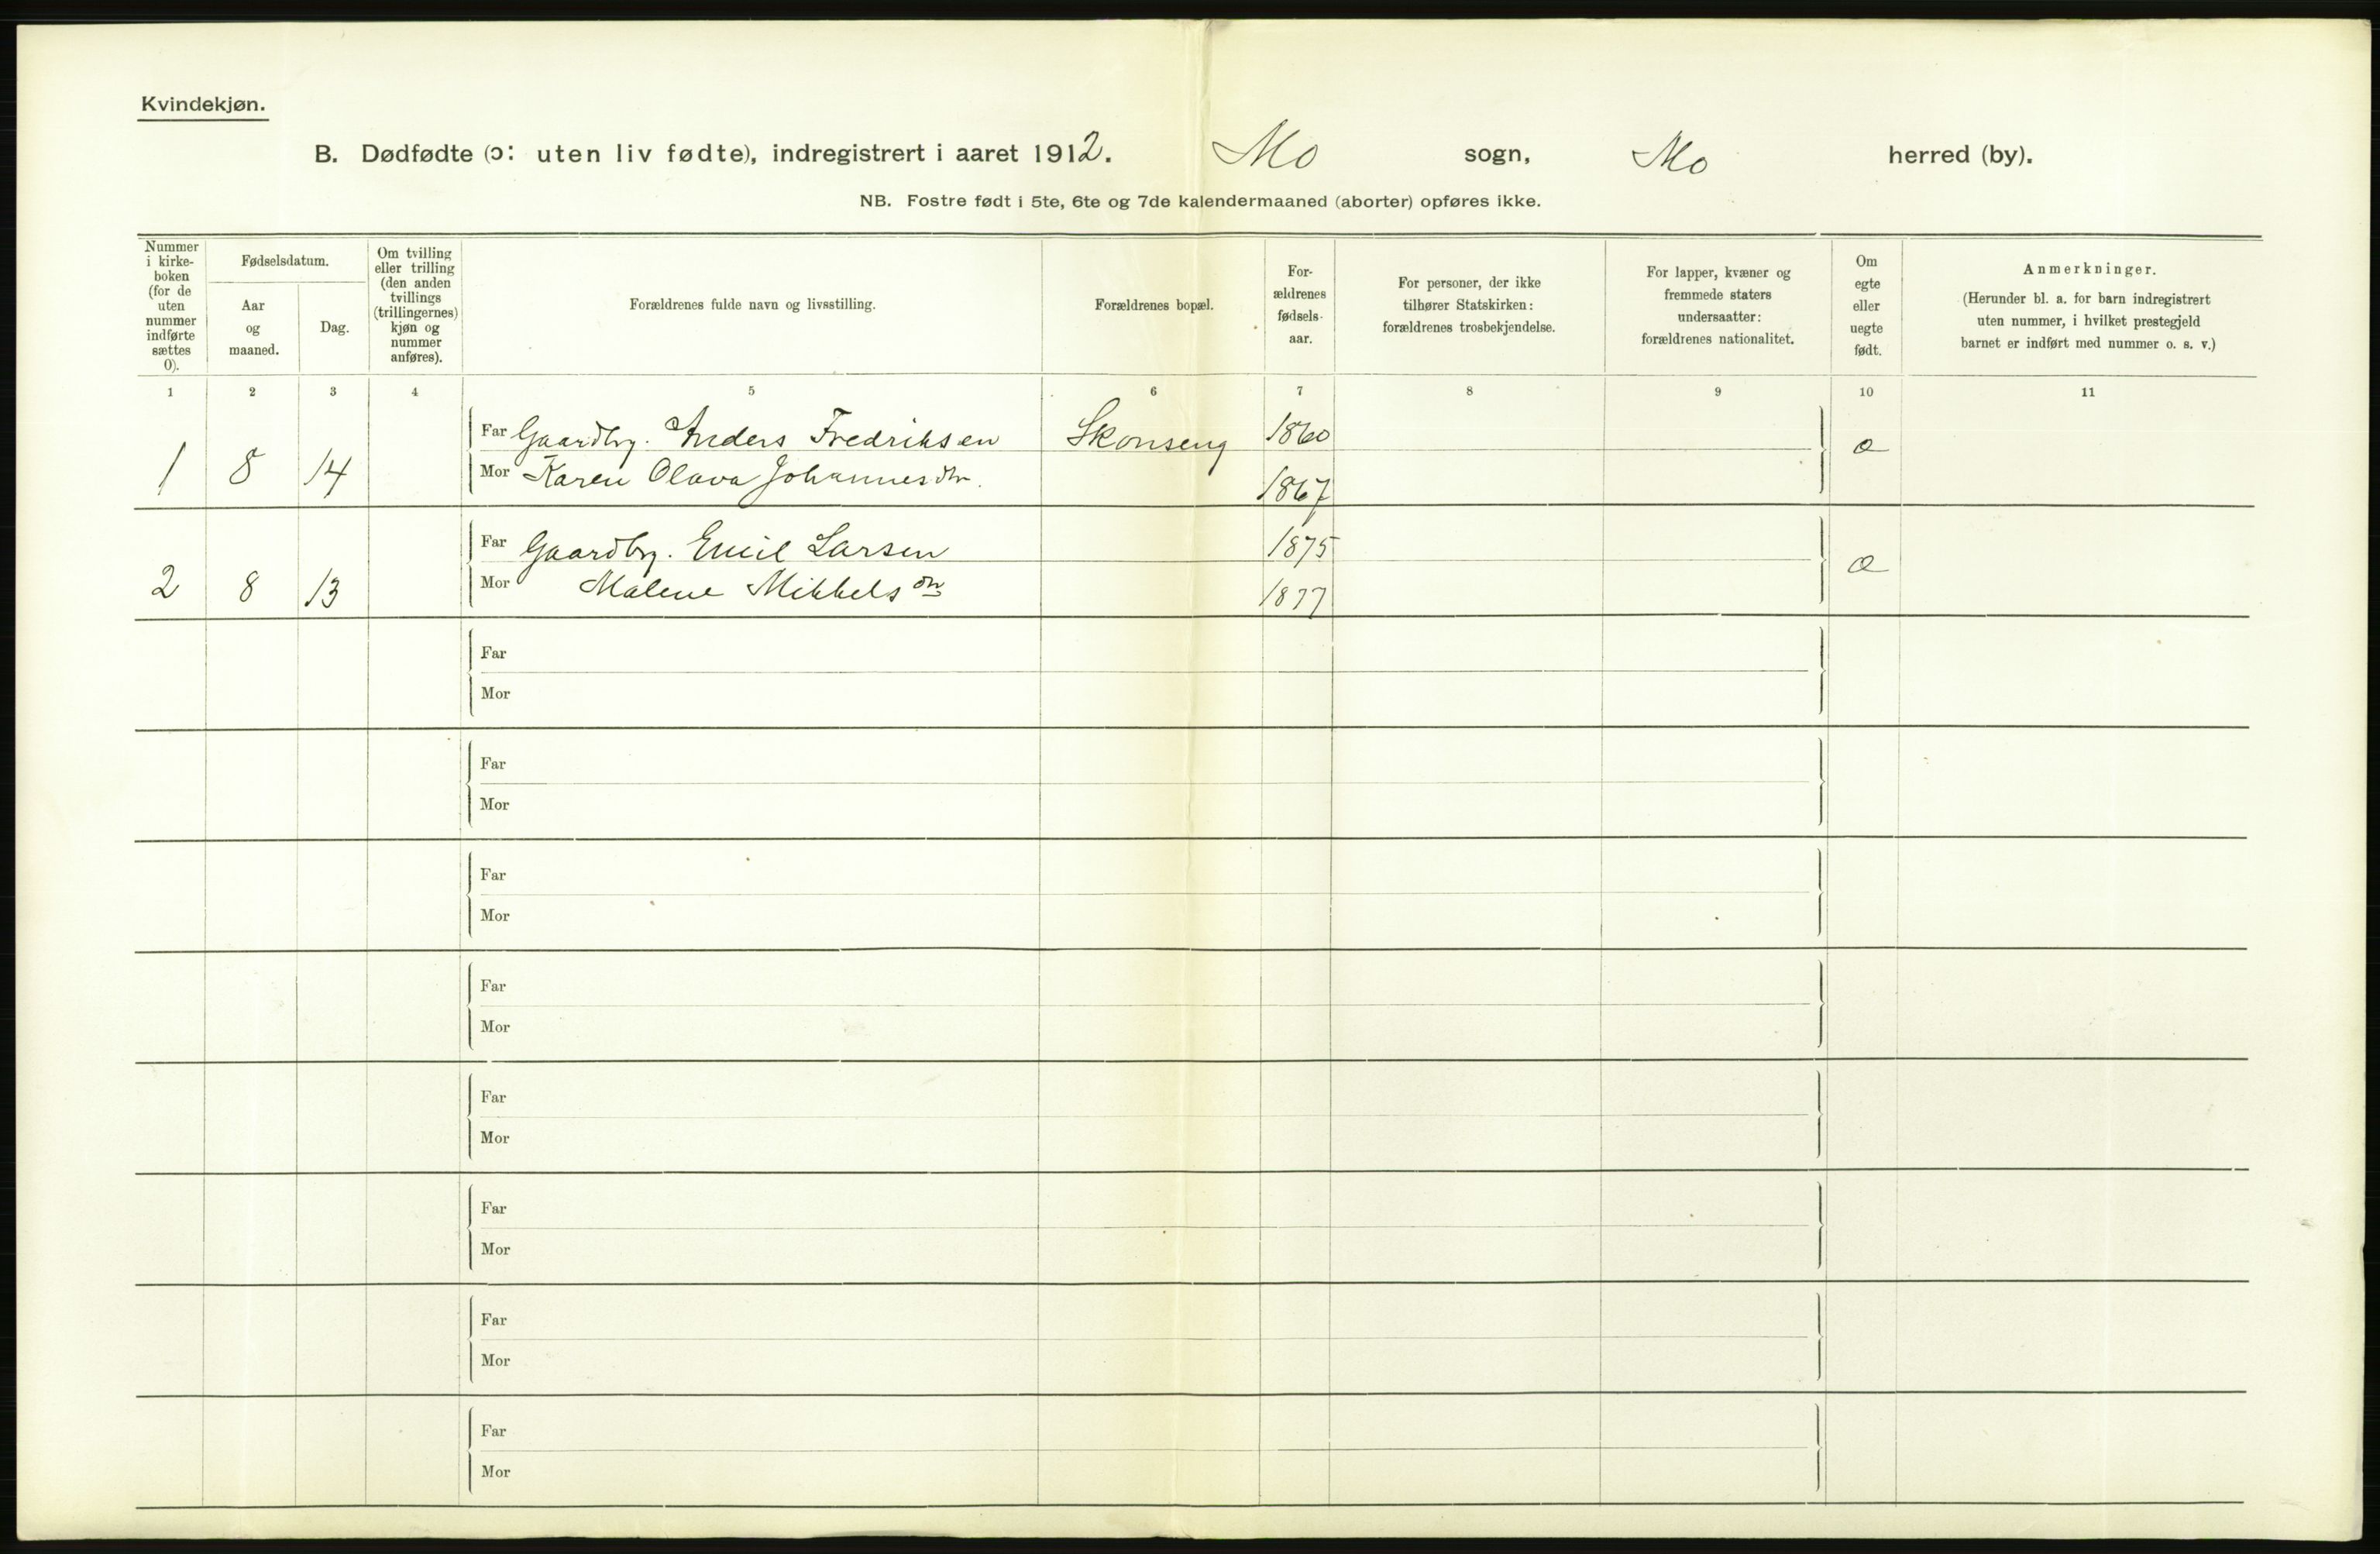 Kvindekjøn.
B. Dødfødte (ɔ: uten liv fødte), indregistrert i aaret 1912. Mo sogn, Mo herred (by).
NB. Fostre født i 5te, 6te og 7de kalendermaaned (aborter) opføres ikke.
Nummer
i kirke-
boken
(for de
uten
nummer
indførte
sættes
0).
Fødselsdatum.
Aar
og
maaned.
Dag.
Om tvilling
eller trilling
(den anden
tvillings
(trillingernes)
kjøn og
nummer
anføres).
Forældrenes fulde navn og livsstilling.
Forældrenes bopæl.
For-
ældrenes
fødsels-
aar.
For personer, der ikke
tilhører Statskirken:
forældrenes trosbekjendelse.
For lapper, kvæner og
fremmede staters
undersaatter:
forældrenes nationalitet.
Om
egte
eller
uegte
født.
Anmerkninger.
(Herunder bl. a. for barn indregistrert
uten nummer, i hvilket prestegjeld
barnet er indført med nummer o. s. v.)
1 2 3 4 5 6 7 8 9 10 11
Far Gaardbr. Anders Fredriksen Skonseng 1860
1 8 14 Mor Karen Olava Johannesdtr. 1867
Far Gaardbr. Emil Larsen 1875
2 8 13 Mor Malene Mikkelsdtr 1877
Far
Mor
Far
Mor
Far
Mor
Far
Mor
Far
Mor
Far
Mor
Far
Mor
Far
Mor